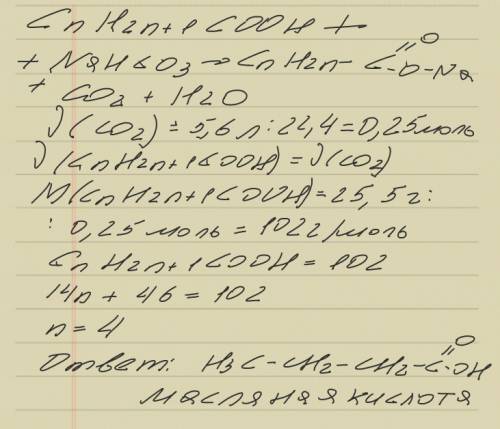 CnH2n+1COOH +
+ NaHCO3 → CnH2n - C(=O)-O-Na
+ CO2 + H2O
ν(CO2) = 5,6 л : 22,4 = 0,25 моль
ν(CnH2n+1COOH) = ν(CO2)
M(CnH2n+1COOH) = 25,5 г :
: 0,25 моль = 102 г/моль
CnH2n+1COOH = 102
14n + 46 = 102
n = 4
Ответ: H3C-CH2-CH2-C(=O)-OH
масляная кислота